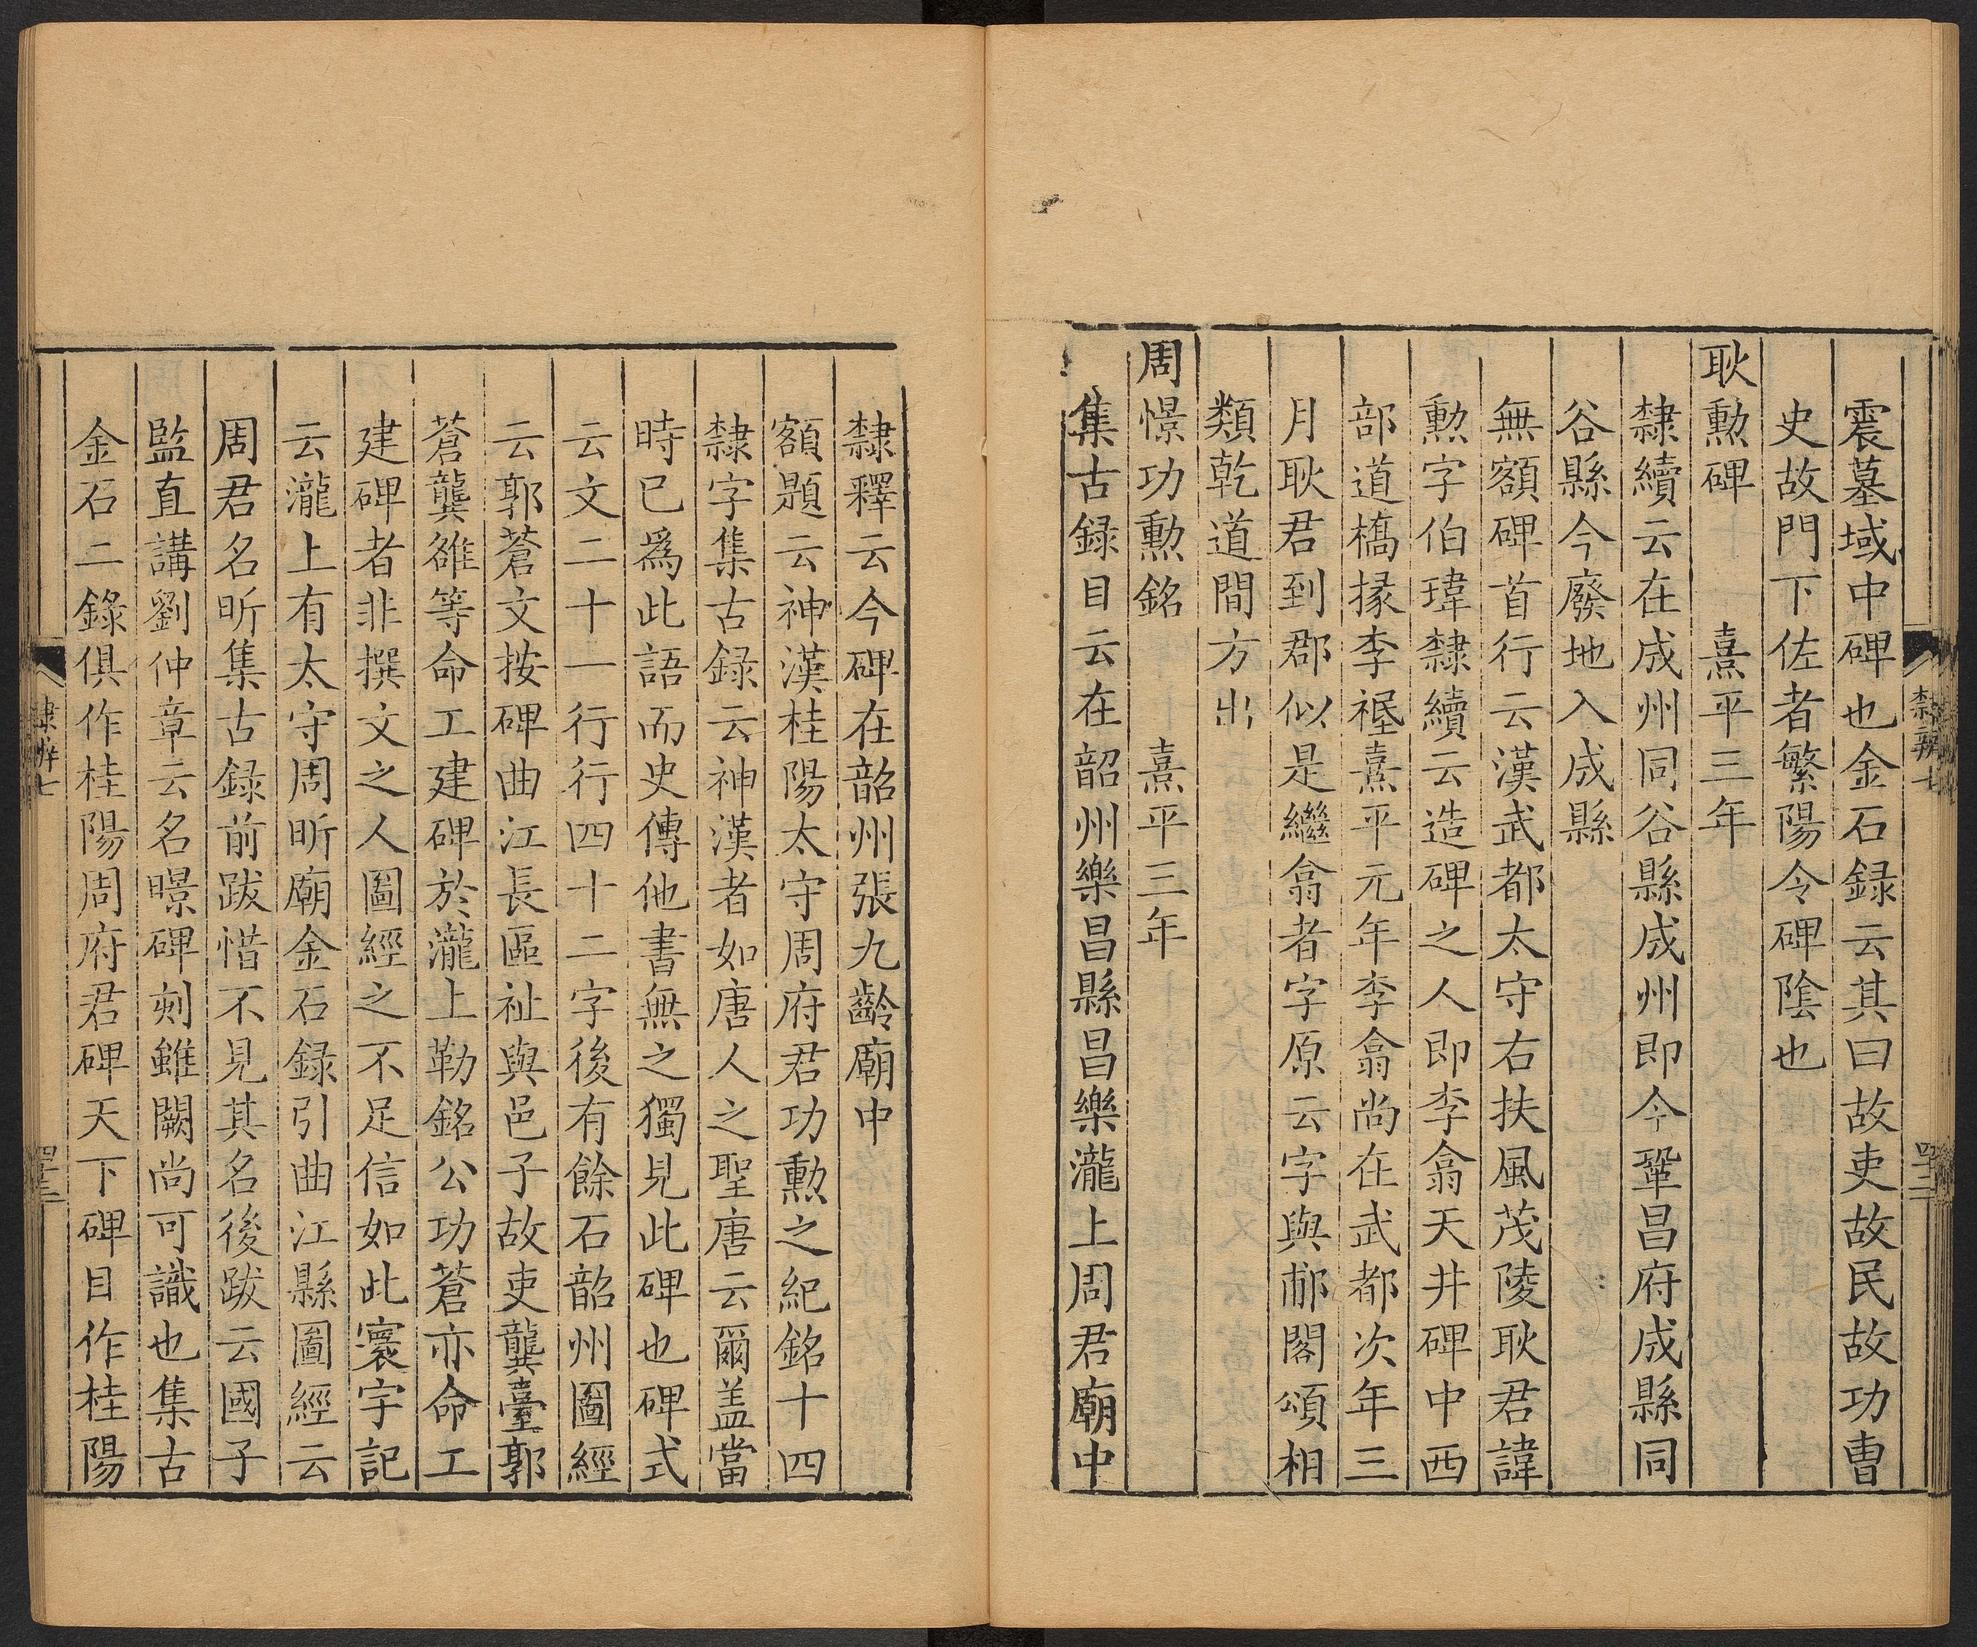 震墓域中碑也金石録云其曰故吏故民故功曹
史故門下佐者繁陽令碑陰也
耿勲碑 熹平三年
隸續云在成州同谷縣成州即今鞏昌府成縣同
谷縣今廢地入成縣
無額碑首行云漢武都太守右扶風茂陵耿君諱
勲字伯瑋隸續云造碑之人即李翕天井碑中西
部道橋掾李禋熹平元年李翕尚在武都次年三
月耿君到郡似是繼翕者字原云字與郙閣頌相
類乾道間方出
周憬功勲銘 熹平三年
集古録目云在韶州樂昌縣昌樂瀧上周君廟中
隸辨七
隸釋云今碑在韶州張九齡廟中
額題云神漢桂陽太守周府君功勲之紀銘十四
隸字集古録云神漢者如唐人之聖唐云爾盖當
時已爲此語而史傳他書無之獨見此碑也碑式
云文二十一行行四十二字後有餘石韶州圖經
云郭蒼文按碑曲江長區祉與邑子故吏龔臺郭
蒼龔雒等命工建碑於瀧上勒銘公功蒼亦命工
建碑者非撰文之人圖經之不足信如此寰宇記
云瀧上有太守周昕廟金石録引曲江縣圖經云
周君名昕集古録前跋惜不見其名後跋云國子
監直講劉仲章云名暻碑刻雖闕尚可識也集古
金石二錄俱作桂陽周府君碑天下碑目作桂陽
隸辨七